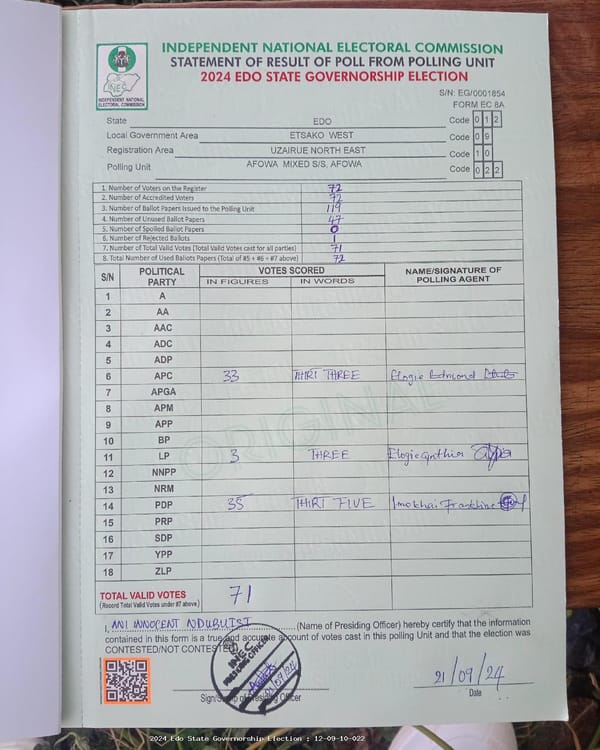 INDEPENDENT NATIONAL ELECTORAL COMMISSION
STATEMENT OF RESULT OF POLL FROM POLLING UNIT
2024 EDO STATE GOVERNORSHIP ELECTION
INEC
INDEPENDENT NATIONAL
ELECTORAL COMMISSION
S/N: EG/0001854
FORM EC 8A
State EDO Code 0 1 2
Local Government Area ETSAKO WEST Code 0 9
Registration Area UZAIRUE NORTH EAST Code 1 0
Polling Unit AFOWA MIXED S/S, AFOWA Code 0 2 2
1. Number of Voters on the Register 72
2. Number of Accredited Voters 72
3. Number of Ballot Papers Issued to the Polling Unit 119
4. Number of Unused Ballot Papers 47
5. Number of Spoiled Ballot Papers 0
6. Number of Rejected Ballots 1
7. Number of Total Valid Votes (Total Valid Votes cast for all parties) 71
8. Total Number of Used Ballots Papers (Total of #5 + #6 + #7 above) 72
S/N POLITICAL PARTY VOTES SCORED NAME/SIGNATURE OF POLLING AGENT
IN FIGURES IN WORDS
1 A
2 AA
3 AAC
4 ADC
5 ADP
6 APC 33 THIRT THREE Elogie Edmond
7 APGA
8 APM
9 APP
10 BP
11 LP 3 THREE Elogie Cynthia
12 NNPP
13 NRM
14 PDP 35 THIRT FIVE Imokhai Frankline
15 PRP
16 SDP
17 YPP
18 ZLP
ORIGINAL
TOTAL VALID VOTES 71
(Record Total Valid Votes under #7 above)
I, ANI INNOCENT NDUBUISI (Name of Presiding Officer) hereby certify that the information
contained in this form is a true and accurate account of votes cast in this polling Unit and that the election was
CONTESTED/NOT CONTESTED
INEC
21/09/24
Sign/Stamp of Presiding Officer
Date
2024 Edo State Governorship Election : 12-09-10-022